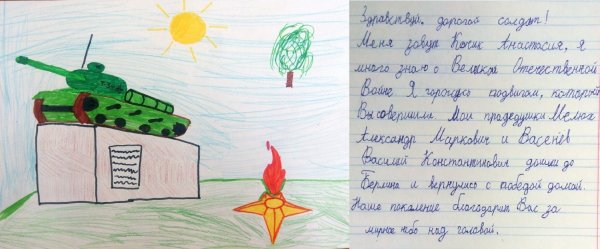 Здравствуй, дорогой солдат!
Меня зовут Кочик Анастасия, я
много знаю о Великой Отечественной
Войне Я горжусь подвигом, который
Вы совершили. Мои прадедушки Мелюх
Александр Маркович и Васенёв
Василий Константинович дошли до
Берлина и вернулись с победой домой.
Наше поколение благодарит Вас за
мирное небо над головой.